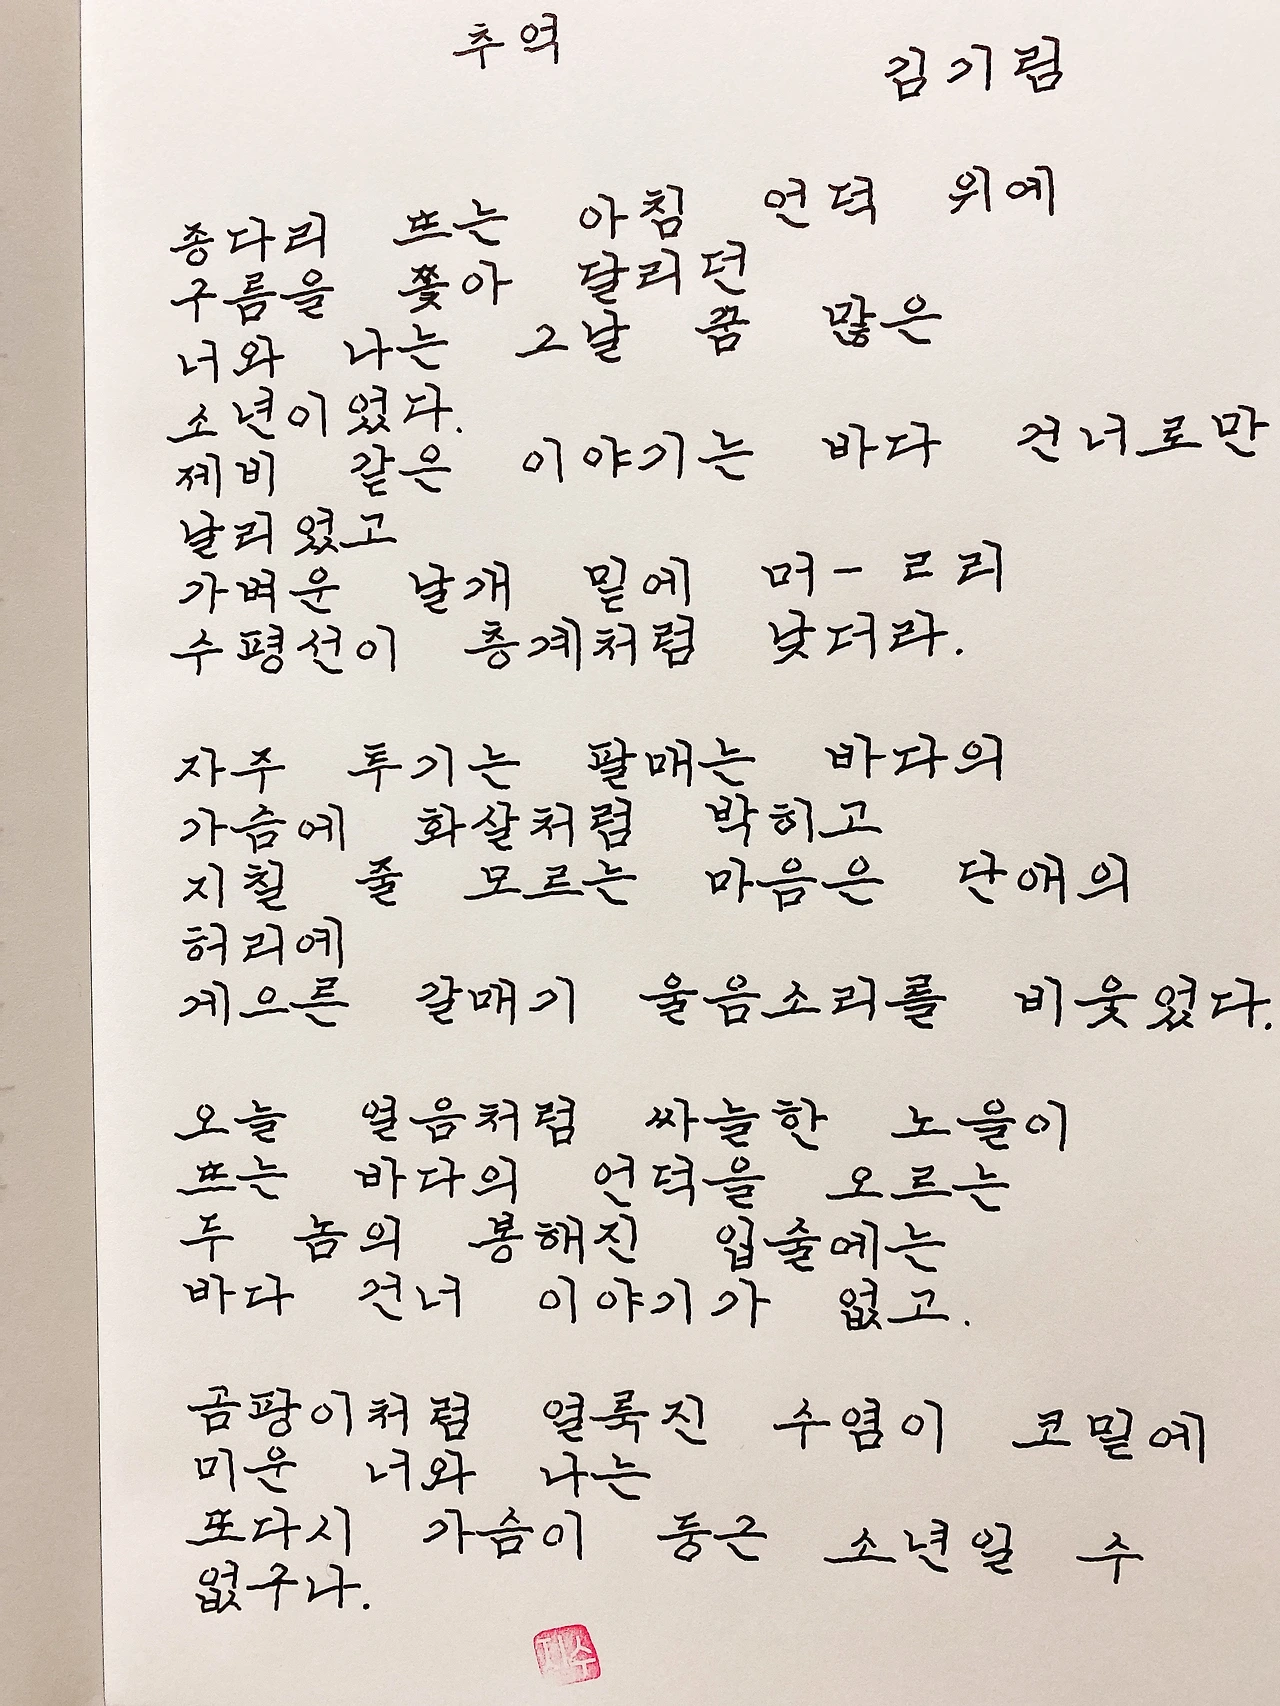 추억
김기림
종다리 뜨는 아침 언덕 위에
구름을 쫓아 달리던
너와 나는 그날 꿈 많은
소년이었다.
제비 같은 이야기는 바다 건너로만
날리었고
가벼운 날개 밑에 머-ㄹ리
수평선이 층계처럼 낮더라.
자주 투기는 팔매는 바다의
가슴에 화살처럼 박히고
지칠 줄 모르는 마음은 단애의
허리에
게으른 갈매기 울음소리를 비웃었다.
오늘 얼음처럼 싸늘한 노을이
뜨는 바다의 언덕을 오르는
두 놈의 봉해진 입술에는
바다 건너 이야기가 없고.
곰팡이처럼 얼룩진 수염이 코밑에
미운 너와 나는
또다시 가슴이 둥근 소년일 수
없구나.
지수